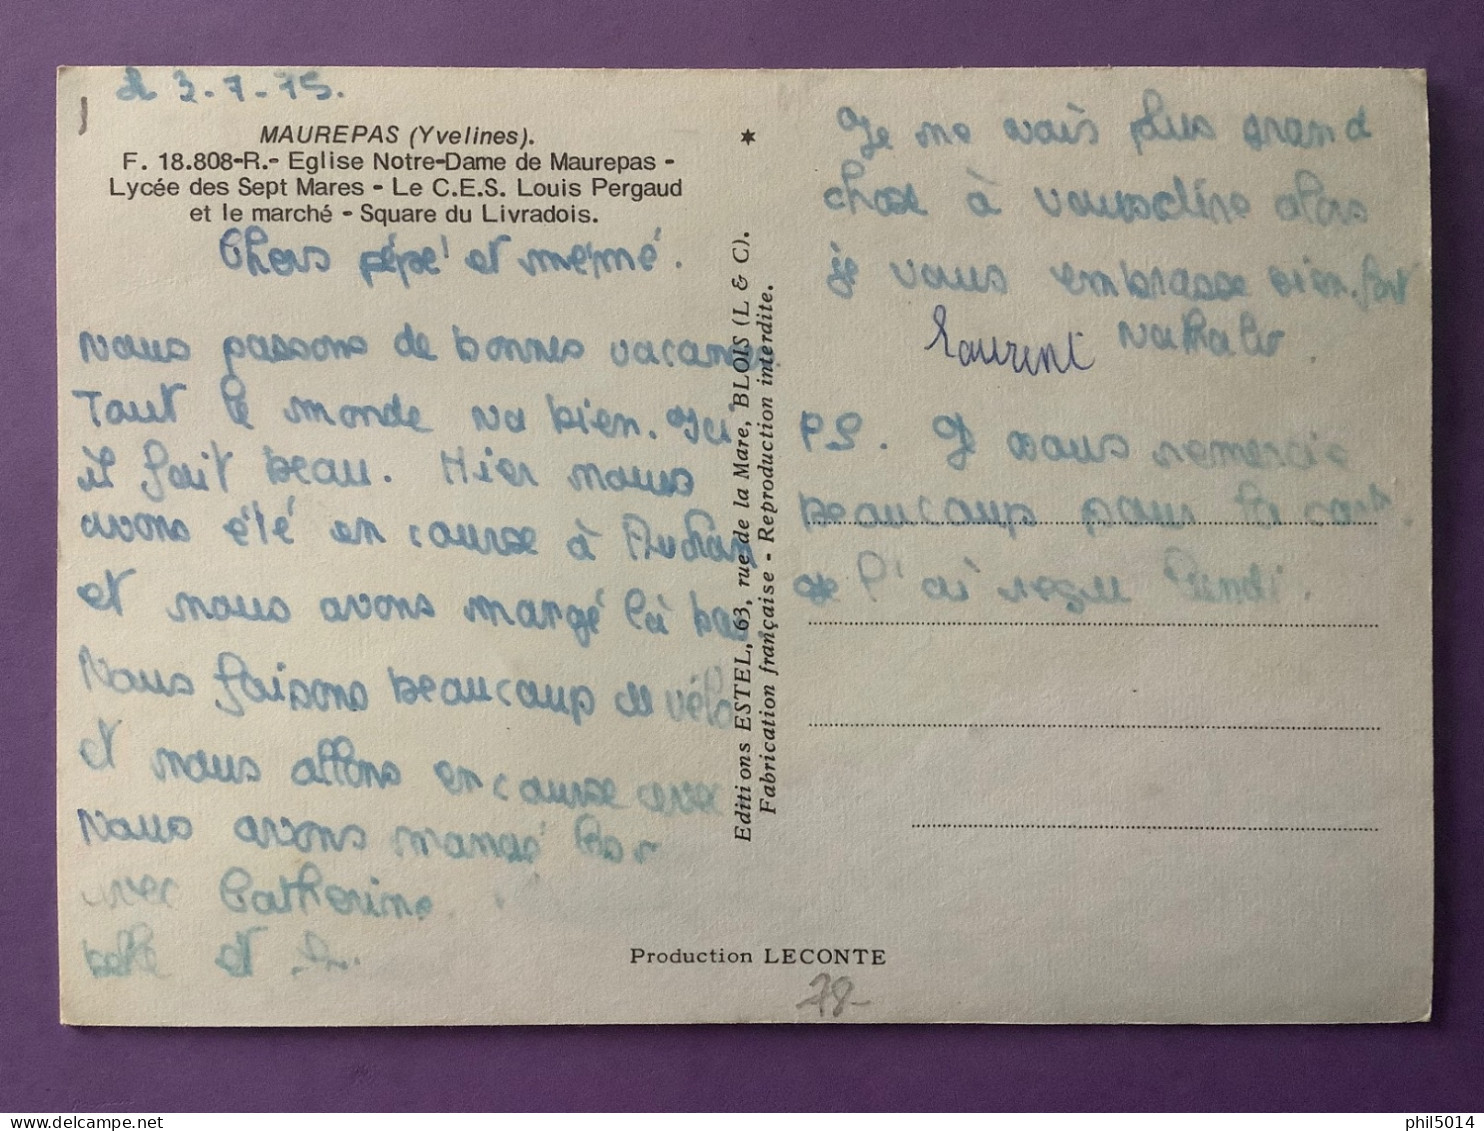 3-7-75.
MAUREPAS (Yvelines).
F. 18.808-R.- Eglise Notre-Dame de Maurepas -
Lycée des Sept Mares - Le C.E.S. Louis Pergaud
et le marché - Square du Livradois.
Chers pépé et mémé.
nous passons de bonnes vacances.
Tout le monde va bien. Ici
il fait beau. Hier nous
avons été en course à
et nous avons mangé là bas.
Nous faisons beaucoup de vélo
et nous allons en course avec
Nous avons mangé
avec Catherine
et
Editions ESTEL, 63, rue de la Mare, BLOIS (L & C).
Fabrication française - Reproduction interdite.
Je ne vais plus grand
chose à vous dire alors
je vous embrasse bien fort
Laurent Nathalie
PS. Je vous remercie
beaucoup pour la carte
l'ai reçu lundi.
Production LECONTE
78-
phil5014